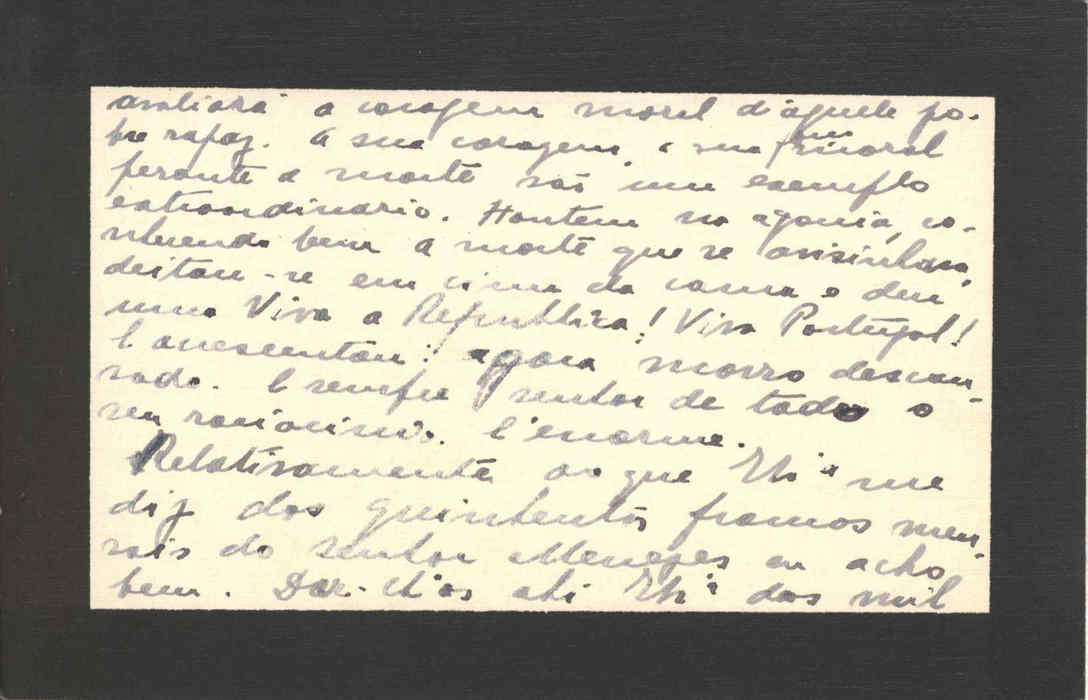 avaliará a coragem moral d'aquele po-
bre rapaz. A sua coragem, e sua moral
perante a morte são um exemplo
extraordinario. Hontem na agonia, co-
nhecendo bem a morte que se avisinhava,
deitou-se em cima da cama e deu
uma Viva a Republica! Viva Portugal!
E acrescentou: agora morro descan-
sado. E sempre senhor de todo o
seu raciocinio. E' enorme.
Relativamente ao que me
diz dos quinhentos francos men-
sais do senhor Menezes eu acho
bem. Dar-lh'os ahi dos mil